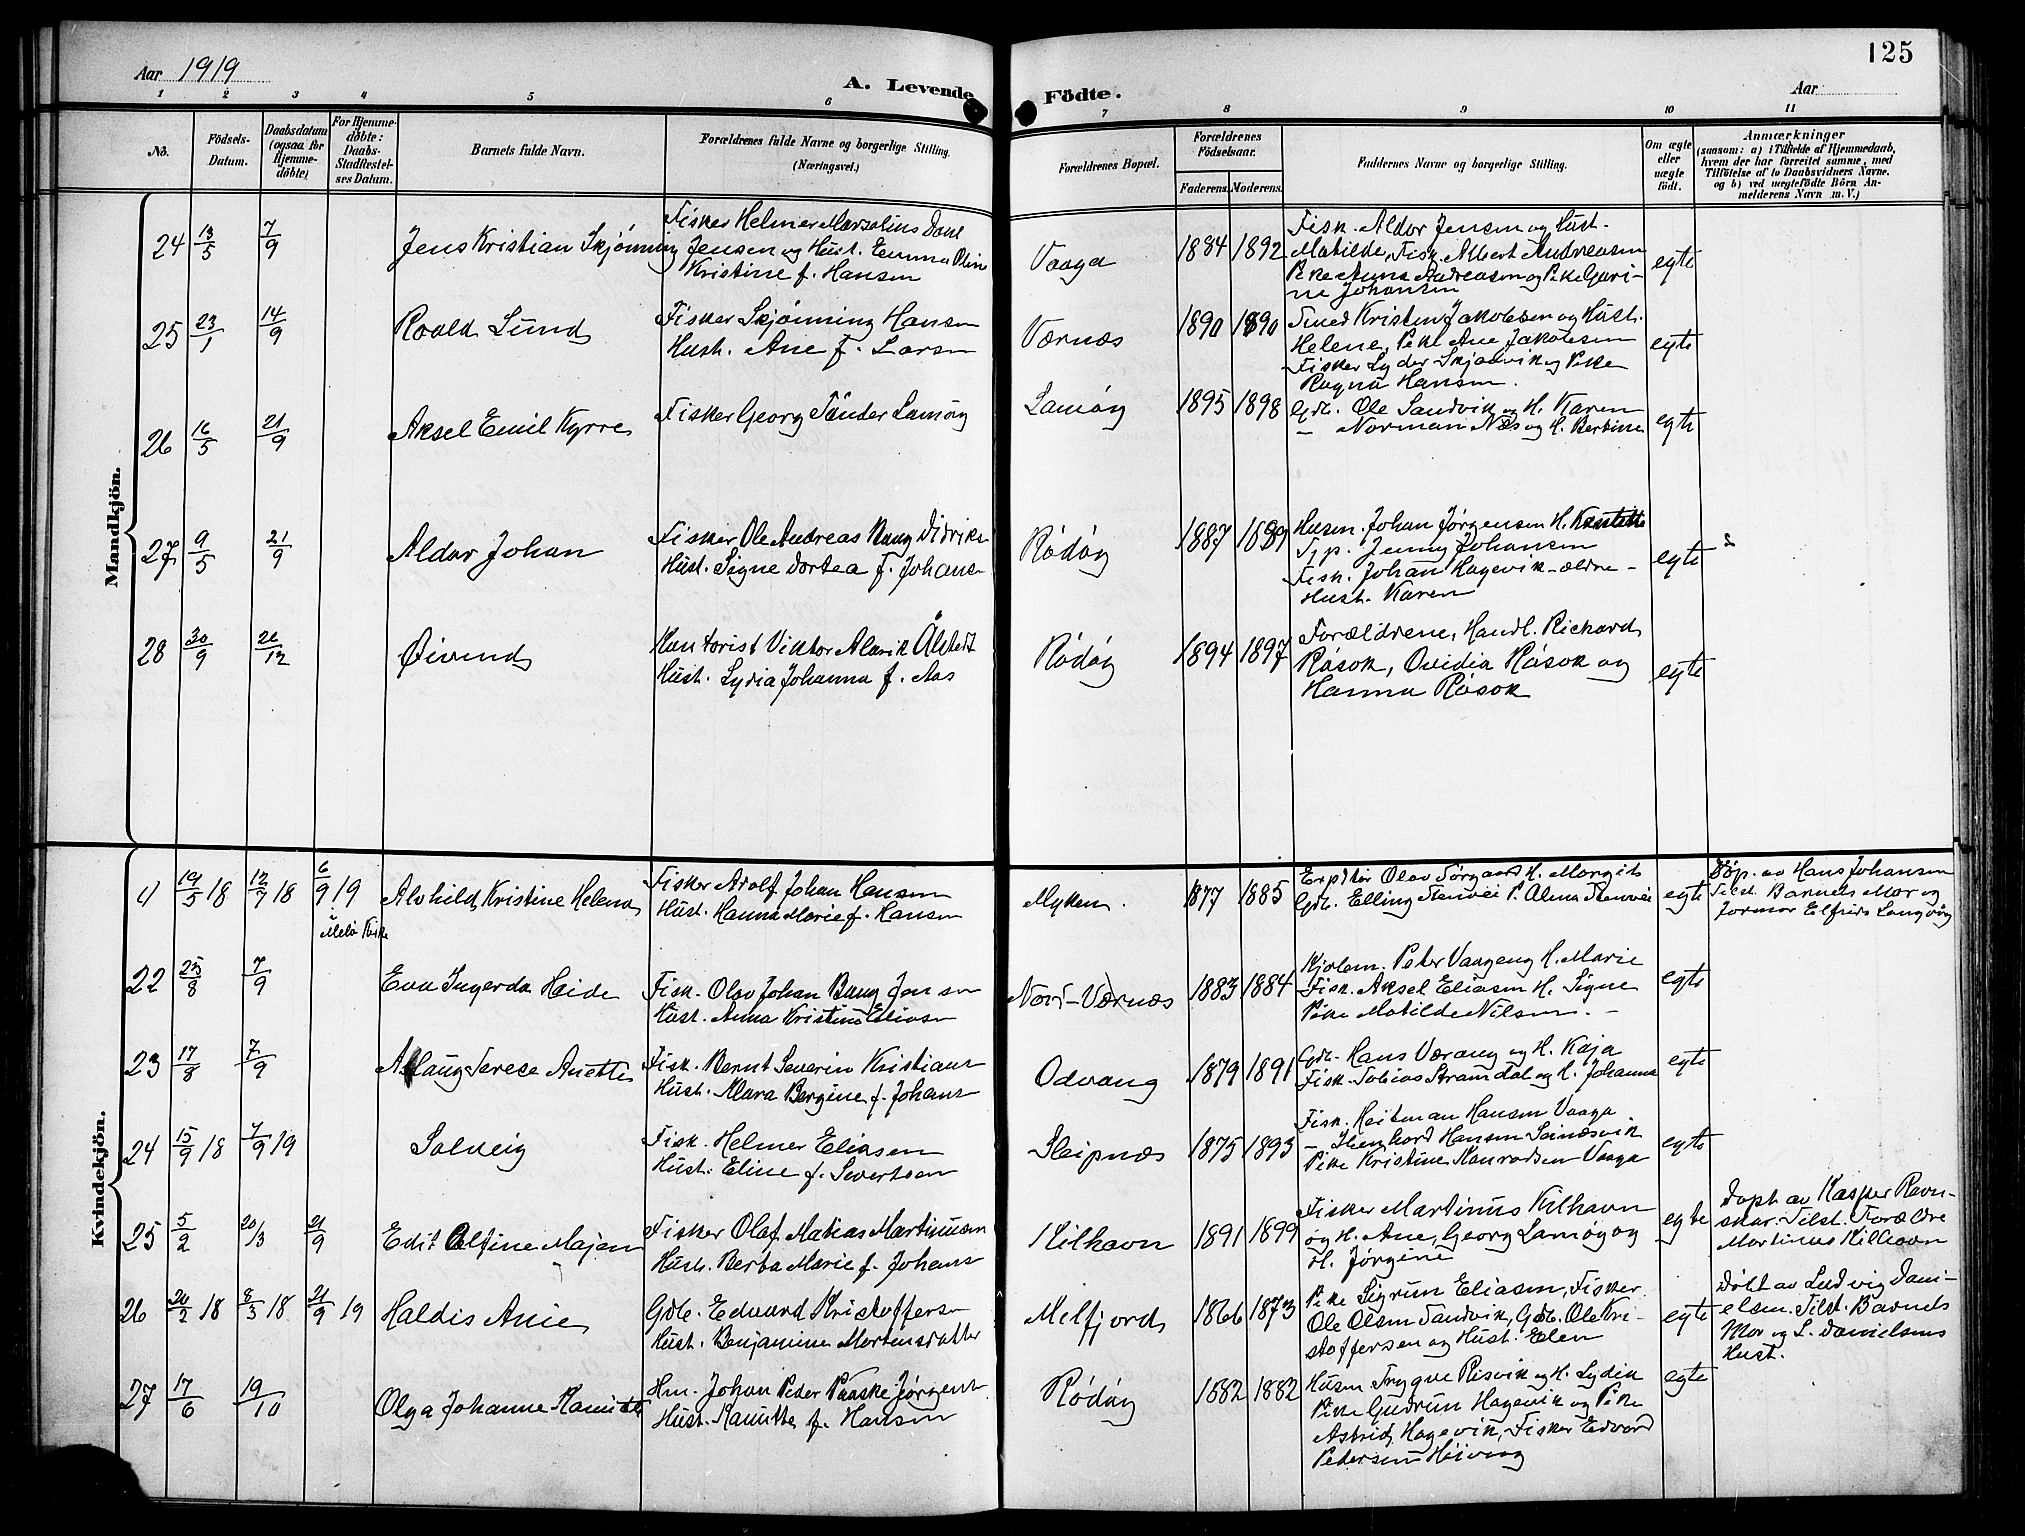 Aar 1919
A. Levende Födte.
125
Aar
1 2 3 4 5 6 7 8 9 10 11
No.
Födsels-Datum.
Daabsdatum (ogsaa for Hjemme-döbte)
For Hjemme-döbte: Daabs-Stadfæstel-ses Datum.
Barnets fulde Navn.
Forældrenes fulde Navne og borgerlige Stilling.
(Næringsvei.)
Forældrenes Bopæl.
Forældrenes Födselsaar.
Faderens. Moderens.
Faddernes Navne og borgerlige Stilling.
Om ægte eller uægte födt.
Anmærkninger
(saasom: a) i Tilfælde af Hjemmedaab, hvem der har forrettet samme, med Tilföielse af to Daabsvidners Navne, og b) ved uægtefödte Börn An-melderens Navn m.V.)
Mandkjön.
24 13/5 7/9 Jens Kristian Skjønning
Fisker Helmer Marselius Dahl
Jensen og Hust. Emma Oline
Kristine f. Hansen
Vaaga 1884 1892
Fisk. Aldor Jensen og Hust.
Matilde, Fisk. Albert Andreasen
Pike Anna Andreasen og Pike Guri-
ne Johansen
egte
25 23/1 14/9 Roald Lund
Fisker Skjønning Hansen
Hust. Ane f. Larsen
Værnes 1890 1890
Smed Kristen Jakobsen og Hust.
Helene, Pike Ane Jakobsen
Fisker Lyder Skjælvik og Pike
Ragna Hansen.
egte
26 16/5 21/9 Aksel Emil Kyrre
Fisker Georg Tønder Lamøy
Lamøy 1895 1898
Gdb. Ole Sandvik og H. Karen
- Norman Næs og H. Berbine
egte
27 9/5 21/9 Aldor Johan
Fisker Ole Andreas Baug Didriks
Hust. Signe Dortea f. Johans
Rödöy 1887 1889
Husm. Johan Jørgensen H.
Tjp. Jenny Johansen
Fisk. Johan Hagevik - ældre -
Hust. Karen
egte
28 30/9 26/12 Øivind
Kontorist Viktor Alarik Ålstedt
Hust. Lydia Johanna f. Aas
Rödöy 1894 1897
Forældrene, Handl. Richard
Råsok, Ovidia Råsok og
Hanna Råsok
egte
Kvindekjön.
4 19/5 18 12/7 18 6/9 19
i Melö Kirke
Alvhild Kristine Helena
Fisker Adolf Johan Hansen
Hust. Hanna Marie f. Hansen
Myken. 1877 1885
Olav Sørgaard H. Margit
Gdb. Elling Stenvei P. Alma Stenvei
egte
Döp. av Hans Johansen
Tilst. Barnets Mor og
Jormor Elfrida Langvåg
22 25/8 7/9 Eva Ingerda Heide
Fisk. Olav Johan Baug Jensen
Hust. Anna Kristine Eliasen
Nord-Værnes 1883 1884
Peter Vaageng H. Marie
Fisk. Aksel Eliasen H. Signe
Pike Matilde Nilsen. -
egte
23 17/8 7/9 Aslaug Terese Anette
Fisk. Bernt Severin Kristians
Hust. Klara Bergine f. Johans
Odvang 1879 1891
Gdb. Hans Værang og H. Kaja
Fisk. Tobias Strømdal og H. Johanna
egte
24 15/9 18 7/9 19 Solveig
Fisk. Helmer Eliasen
Hust. Eline f. Sivertsen
Sleipnes 1875 1893
Fisk. Heitman Hansen Vaaga.
- Hansen Seinesvik
Pike Kristine Konradsen Vaaga
egte
25 5/2 20/3 21/9 Edit Olfine Majan
Fisker Olaf Matias Martinusen
Hust. Berta Marie f. Johans
Kilhavn 1891 1899
Fisker Martinus Kilhavn
og H. Ane, Georg Lamøy og
H. Jørgine
egte
Döpt av Kasper Ravn-
skar. Tilst. Forældre
Martinus Kilhavn
26 20/2 18 8/3 18 21/9 19 Haldis Anie
Gdb. Edvard Kristoffersen
Hust. Benjamine Mortensdatter
Melfjord 1866 1873
Pike Sigrun Eliasen, Fisker
Ole Olsen Sandvik, Gdb. Ole Kri-
stoffersen og Hust. Elen
egte
Döbt av Ludvig Dani-
elsen. Tilst. Barnets
Mor og L. Danielsens
Hust.
27 17/6 19/10 Olga Johanne Ranitte
Hm. Johan Peder Paaske Jørgens
Hust. Ranitte f. Hansen
Rödöy 1882 1882
Husm Trygve Risvik og H. Lydia
Pike Gudrun Hagevik og Pike
Astrid Hagevik, Fisker Edvard
Pedersen Höivaag
egte